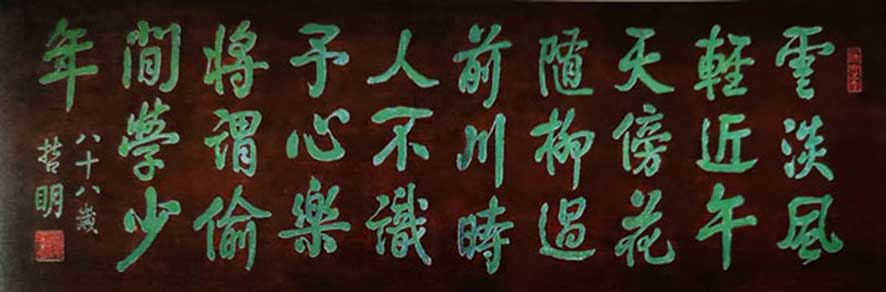 雲淡風
輕近午
天傍花
隨柳過
前川時
人不識
予心樂
將謂偷
間學少
年
八十八歲
哲明